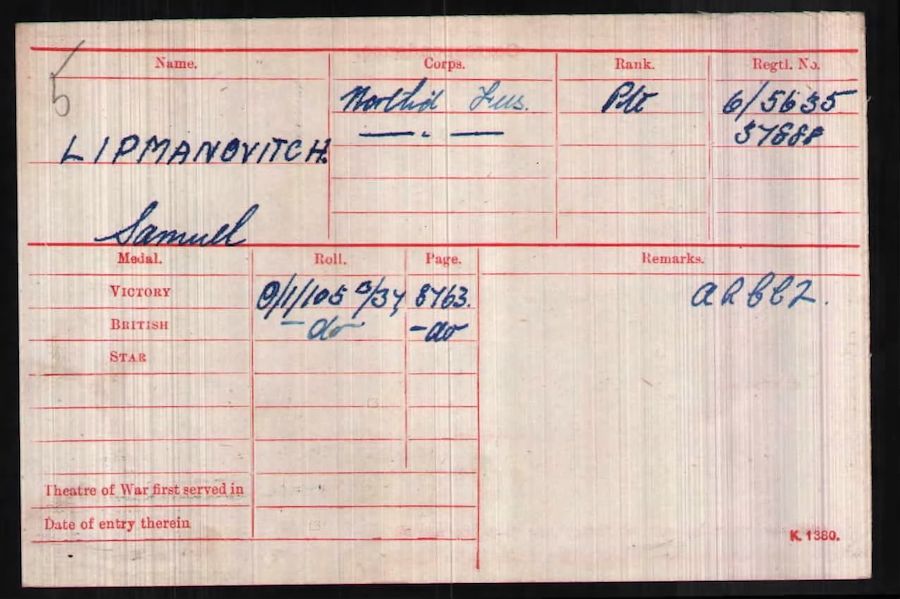 5
Name. Corps. Rank. Regtl. No.
Northd Fus. Pte 6/5635
LIPMANOVITCH. — " — 37688
Samuel
Medal. Roll. Page. Remarks.
VICTORY O/1/105 B/37 8763. a R 6622.
BRITISH -do -do
STAR
Theatre of War first served in
Date of entry therein
K. 1380.